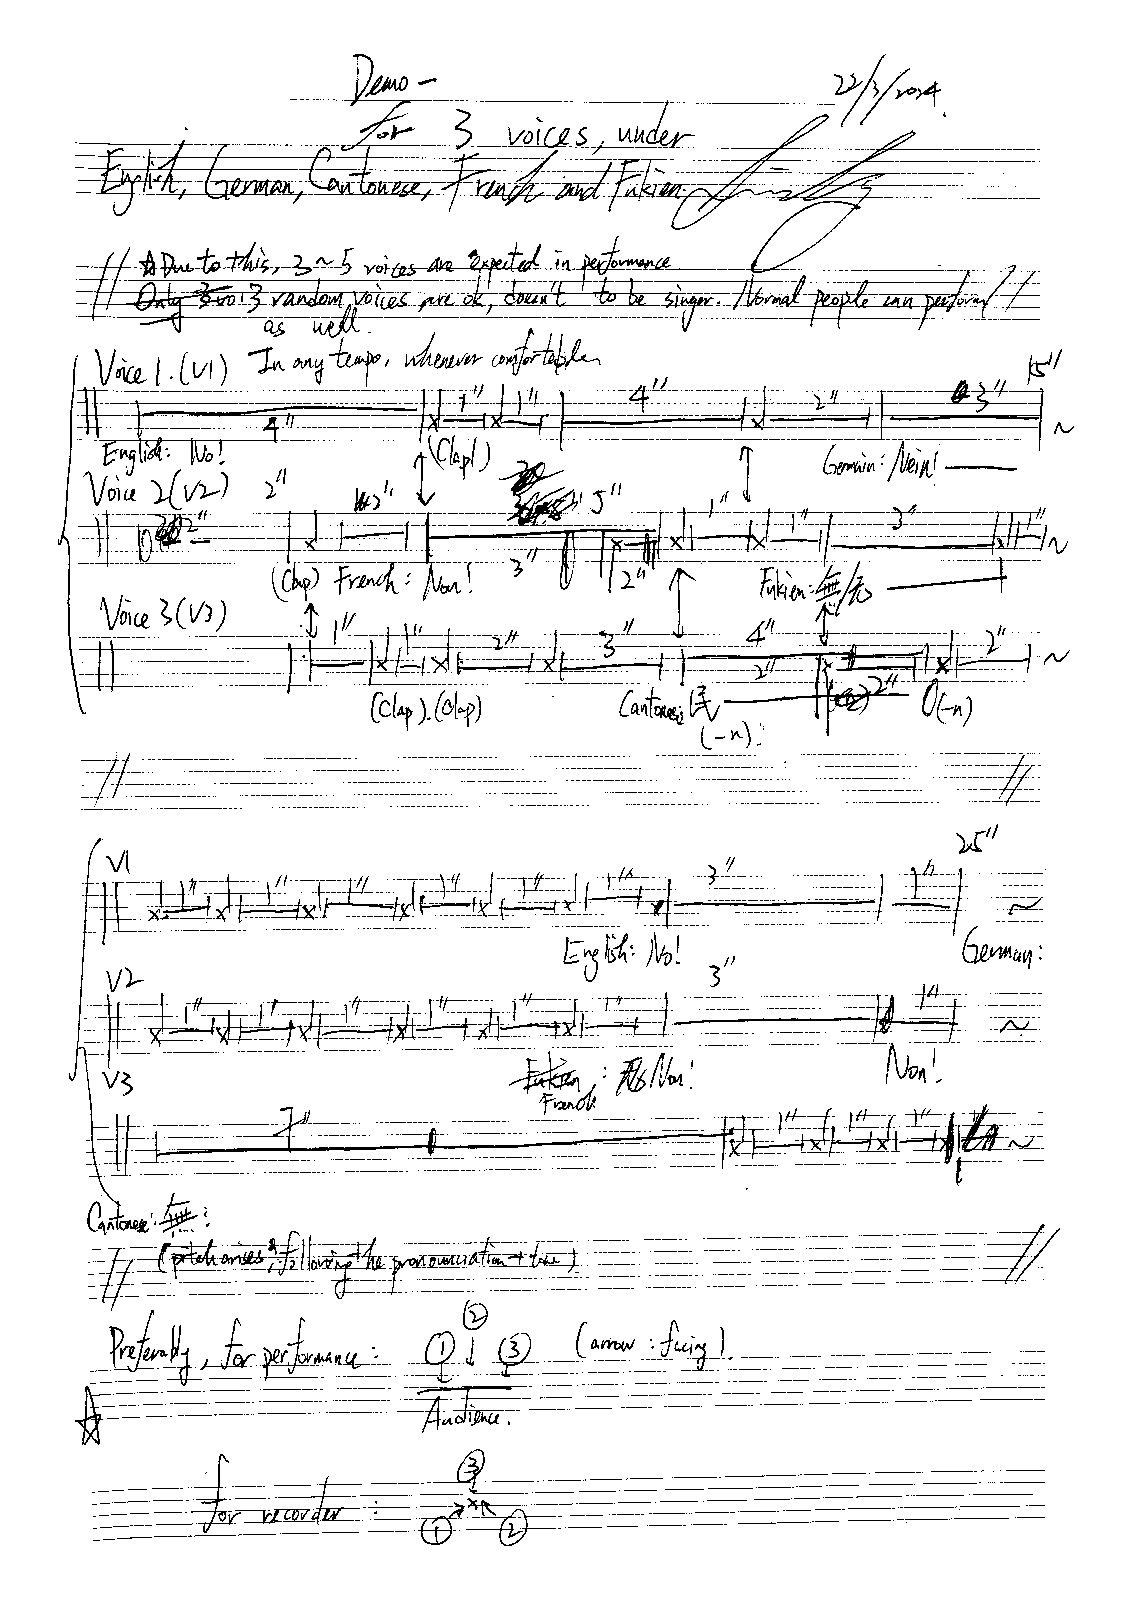 Demo -
22/3/2024
for 3 voices, under
English, German, Cantonese, French and Fukien
// ☆Due to this, 3~5 voices are expected in performance
3 random voices are ok, doesn't to be singer. Normal people can perform //
as well.
Voice 1. (V1) In any tempo, whenever comfortable
15"
4" 1" 1" 4" 2" 3" ~
English: No! (Clap!) German: Nein!
Voice 2 (V2)
2" 2" 5" 1" 1" 3" 1" ~
3" 2"
(Clap) French: Non! Fukien: 無/无
Voice 3 (V3)
1" 1" 2" 3" 4" 2" ~
2" 2"
(Clap). (Clap) Cantonese: (-n). (-n)
// //
V1
25"
1" 1" 1" 1" 1" 1" 3" 1" ~
English: No! German:
V2
1" 1" 1" 1" 1" 1" 3" 1" ~
French: Non! Non!
V3
7" 1" 1" 1" ~
Cantonese: 無:
// (pitch arises, following the pronunciation + ) //
Preferably, for performance: ① ② ③ (arrow: facing).
☆ Audience.
for recorder: ③
① ②